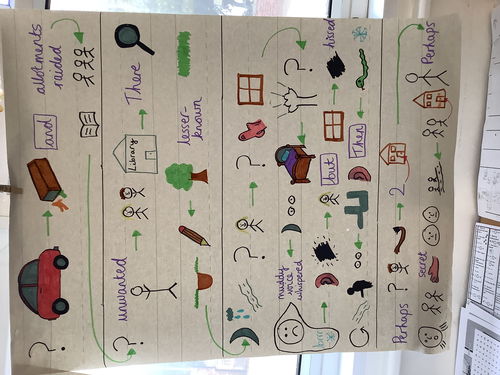 ?
and
allotments
raided
?
unwanted
Library
There
lesser-
known
?
?
muddy
voice
whispered
?
but
hissed
Then
Perhaps
?
2
secret
Perhaps